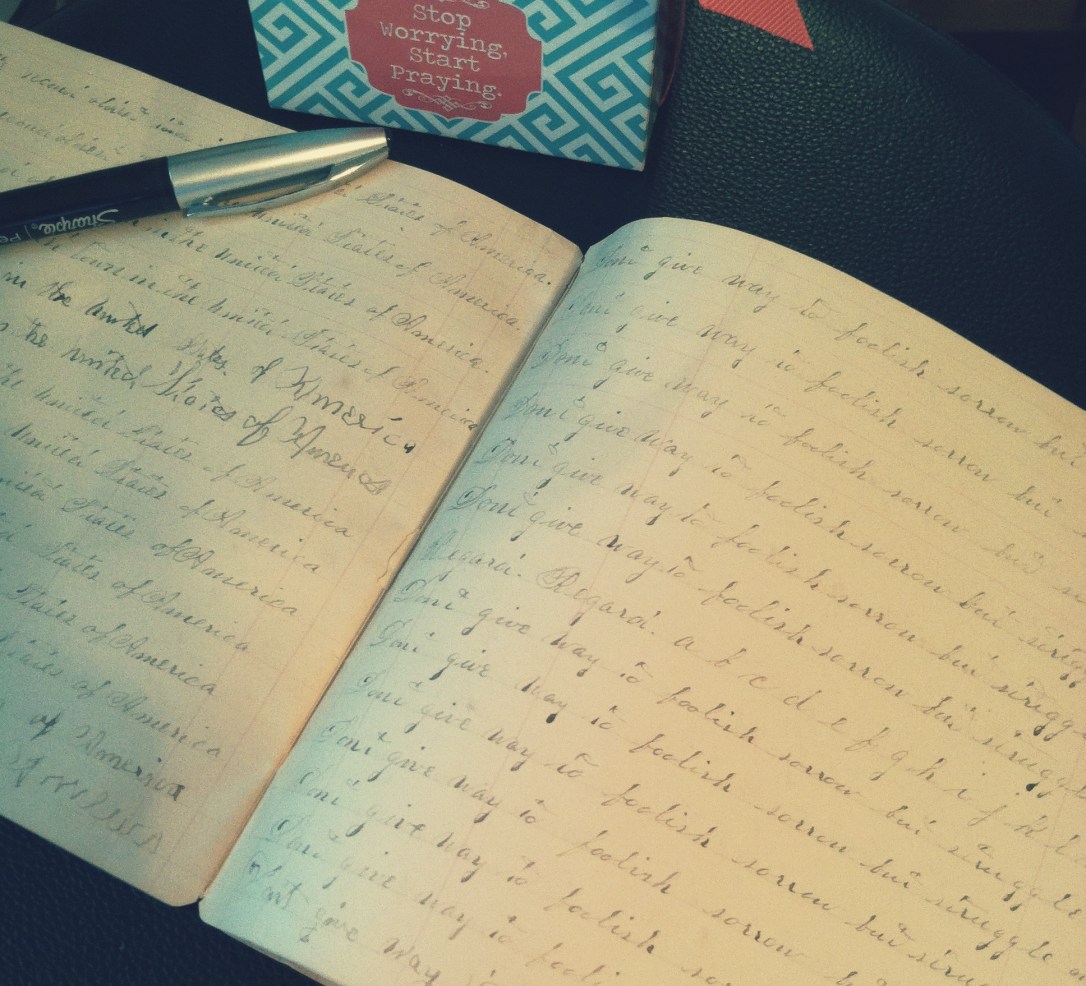 Stop
Worrying,
Start
Praying.
Sharpie
States of America.
united States of America.
in the united States of America.
town in the united States of America
in the united States of America
the united States of America
the united States of America
united States of America
States of America
States of America
States of America
States of America
of America
Dont give way to foolish sorrow but
Dont give way to foolish sorrow but
Dont give way to foolish sorrow but
Dont give way to foolish sorrow but strugg
Dont give way to foolish sorrow but strugg
Dont give way to foolish sorrow but struggl
Regard. Regard. a b c d e f g h i j k l
Dont give way to foolish sorrow but struggle
Dont give way to foolish sorrow but struggle
Dont give way to foolish sorrow but strugg
Dont give way to foolish sorrow
Dont give way to foolish
Dont give way to fooli
Dont give way